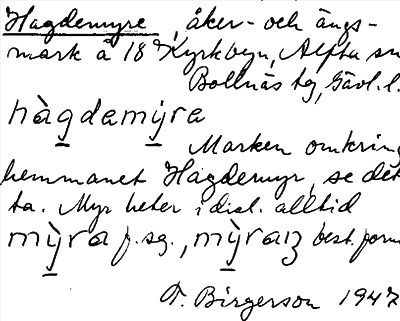 Hagdemyre, åker- och ängs-
mark å 18 Kyrkbyn, Alfta sn
Bollnäs tg, Gävl. l.
hàgdamỳra
Marken omkring
hemmanet Hagdemyr, se det
ta. Myr heter i dial. alltid
mỳra f. sg., mỳraꞐ best. form
F. Birgerson 1947